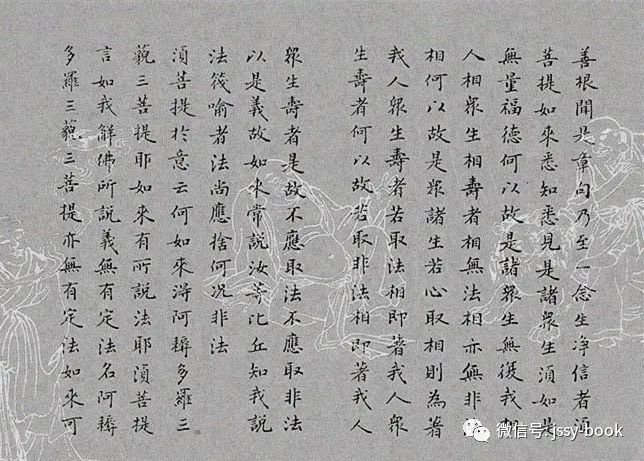 善根聞是章句乃至一念生净信者湏
菩提如來悉知悉見是諸眾生淂如是
無量福德何以故是諸眾生無復我
人相眾生相壽者相無法相亦無非
相何以故是眾諸生若心取相則為著
我人眾生壽者若取法相即著我人眾
生壽者何以故若取非法相即著我人
眾生壽者是故不應取法不應取非法
以是義故如來常說汝等比丘知我說
法筏喻者法尚應捨何況非法
湏菩提於意云何如來淂阿耨多羅三
藐三菩提耶如來有所說法耶湏菩提
言如我解佛所說義無有定法名阿耨
多羅三藐三菩提亦無有定法如來可
微信号:jssy-book